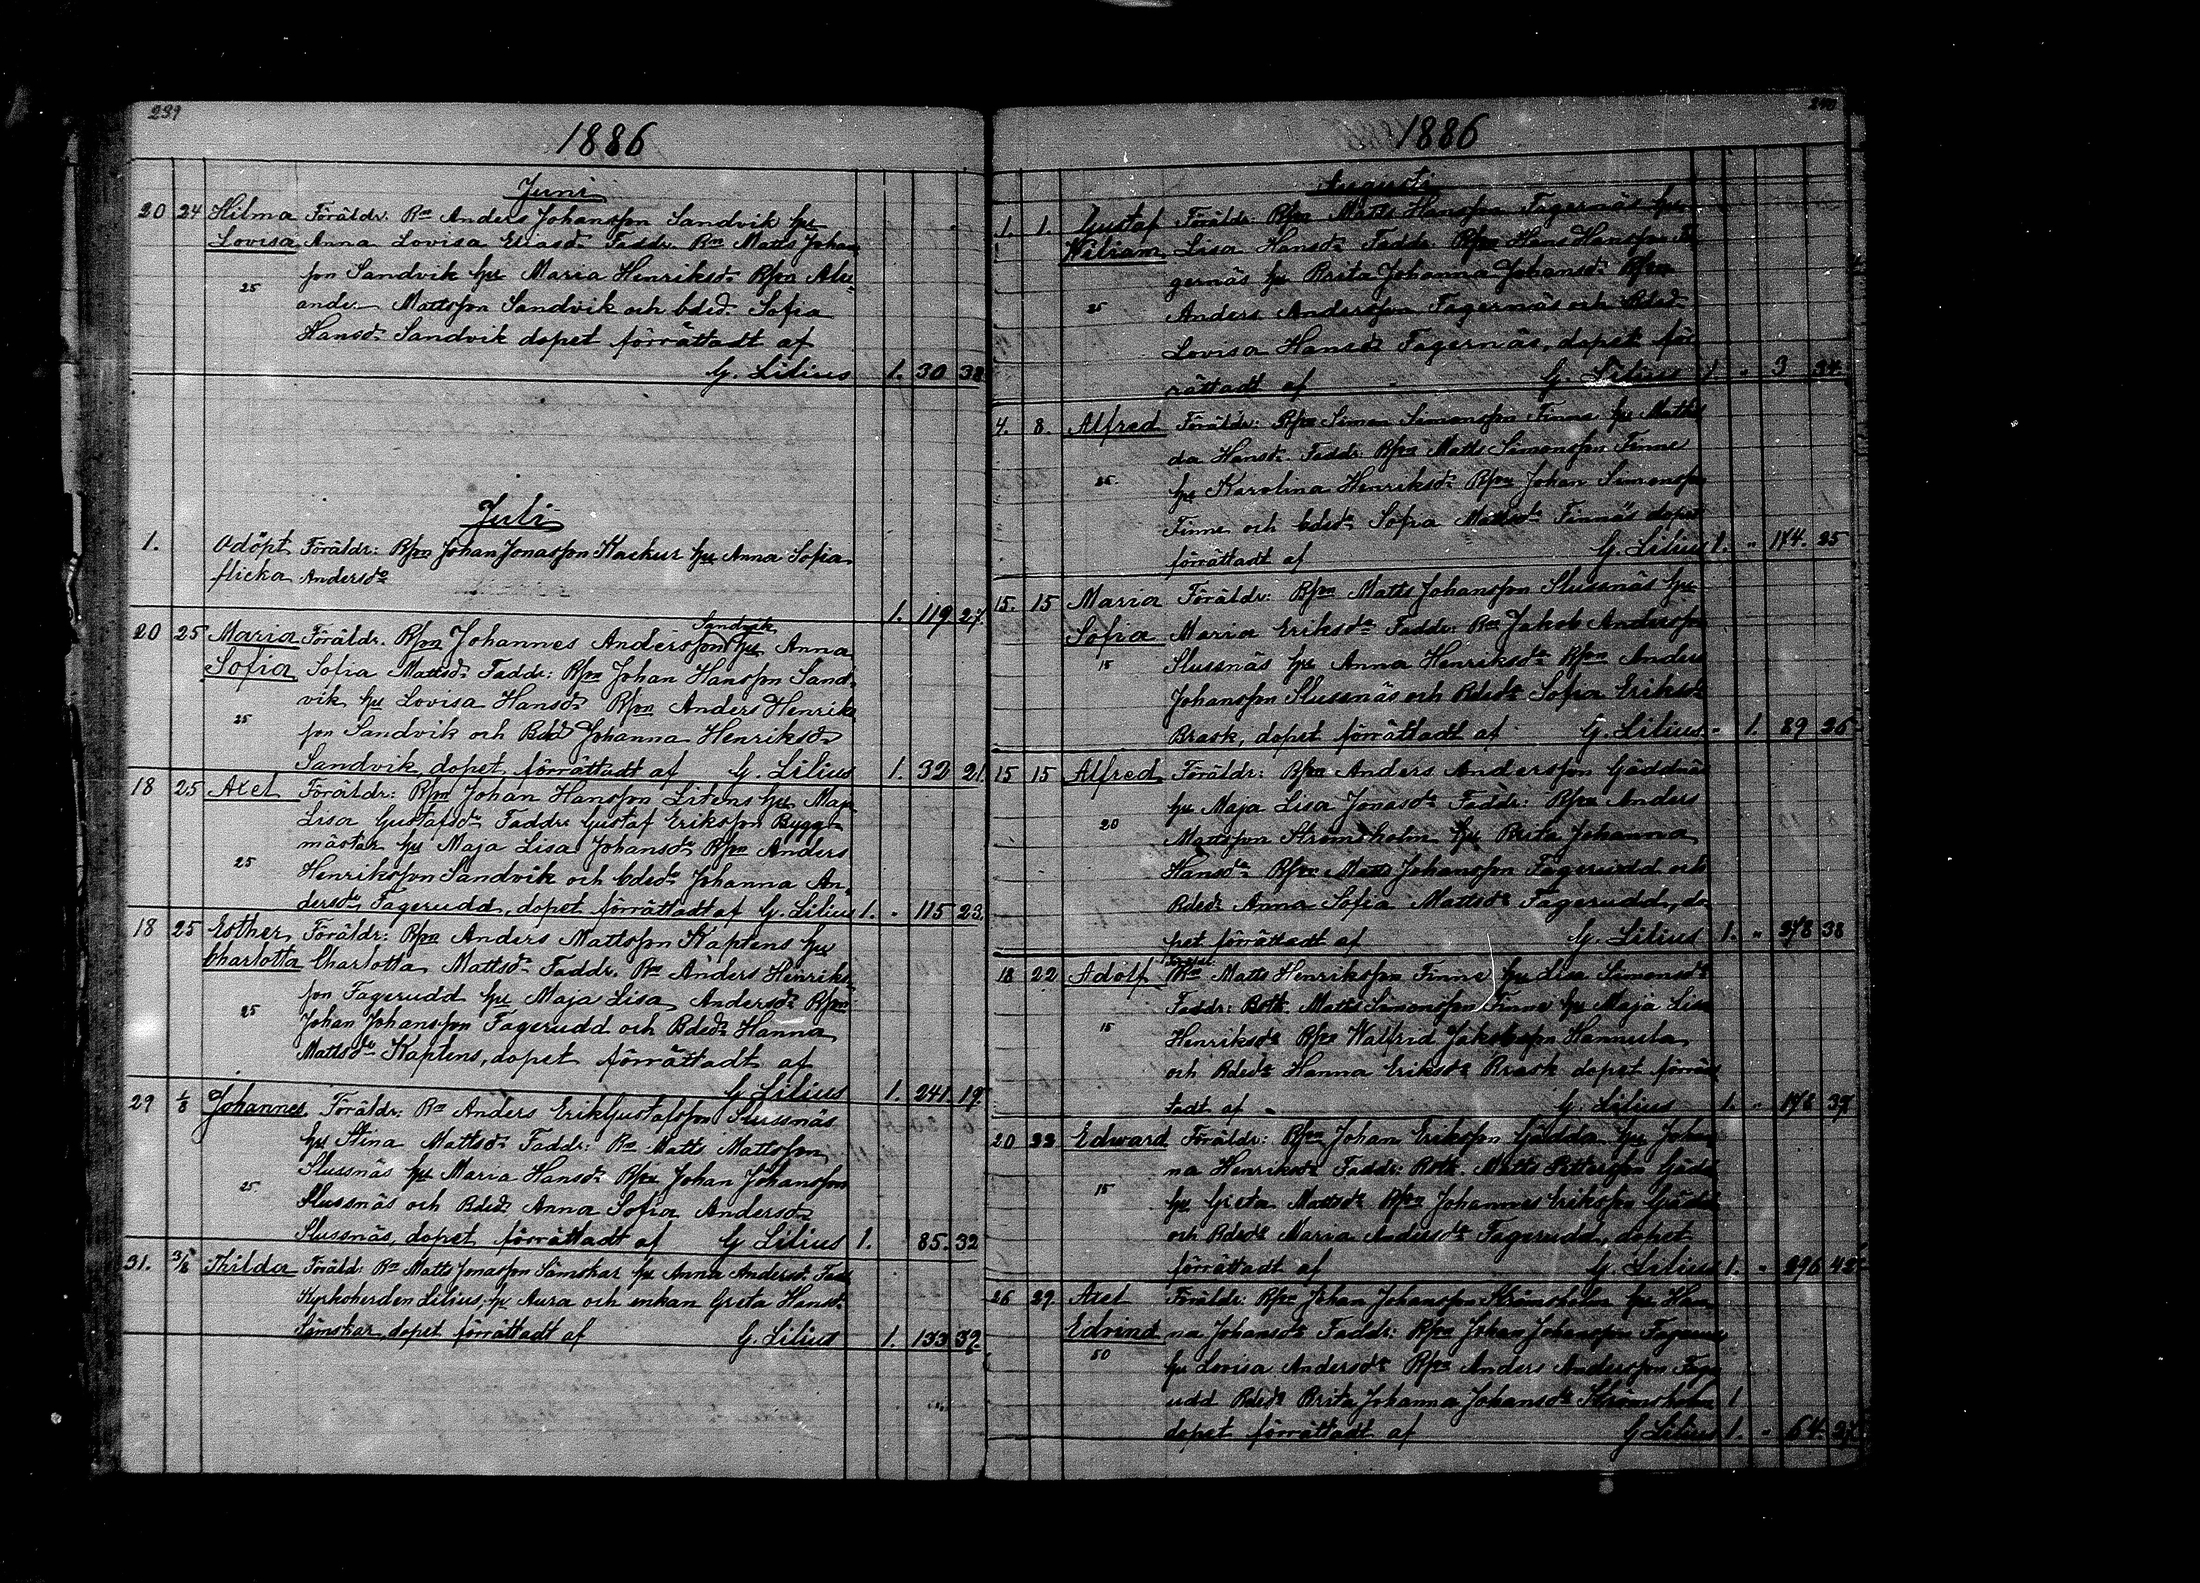 239
1886
Juni
20 24 Hilma Föräldr. Bn Anders Johansson Sandvik hu
Lovisa Anna Lovisa Eliasdr Faddr. Bn Matts Johan
son Sandvik hu Maria Henriksdr Bson Alex
ander Mattsson Sandvik och bded. Sofia
25
Hansdr Sandvik dopet förrättadt af
G. Lilius 1. 30 38
Juli
1. Odöpt Föräldr: Bson Johan Jonasson Kackur hu Anna Sofia
flicka Andersdr
1. 119 27
20 25 Maria Föräldr. Bson Johannes Andersson Sandvik hu Anna
Sofia Sofia Mattsdr Faddr: Bson Johan Hansson Sand
vik hu Lovisa Hansdr Bson Anders Henriks
25 son Sandvik och Bded Johanna Henriksdr
Sandvik, dopet förrättadt af G. Lilius 1. 32 21
18 25 Axel Föräldr: Bson Johan Hansson Litens hu Maja
Lisa Gustafsdr Faddr. Gustaf Eriksson Bygg-
mästar hu Maja Lisa Johansdr Bson Anders
25 Henriksson Sandvik och bdedr Johanna An-
dersdr Fagerudd, dopet förrättadt af G. Lilius 1. " 115 23.
18 25 Esther Föräldr: Bson Anders Mattsson Kaptens hu
Charlotta Charlotta Mattsdr Faddr. Bn Anders Henriks-
son Fagerudd hu Maja Lisa Andersdr Bson
25 Johan Johansson Fagerudd och Bdedr Hanna
Mattsdr Kaptens, dopet förrättadt af
G Lilius 1. 241 19
29 1/8 Johannes Föräldr: Bn Anders Erik Gustafsson Slussnäs
hu Stina Mattsdr Faddr: Bn Matts Mattsson
Slussnäs hu Maria Hansdr Bson Johan Johansson
25 Slussnäs och Bdedr Anna Sofia Andersdr
Slussnäs, dopet förrättadt af G Lilius 1. 85. 32
31. 3/8 Thilda Föräld. Bn Matts Jonasson Sämskar hu Anna Andersdr Fadd
Kyrkoherden Lilius, hu Aura och enkan Greta Hansdr
Sämskar dopet förrättadt af G. Lilius 1. 133 32.
240
1886
Augusti
1. 1. Gustaf Föräldr: Bson Matts Hansson Fagernäs hu
Wiliam Lisa Hansdr Faddr. Bson Hans Hansson Fa
gernäs hu Brita Johanna Johansdr Bson
25 Anders Andersson Fagernäs och Bded.
Lovisa Hansdr Fagernäs, dopet för
rättadt af G. Lilius 1 " 3 34
4. 8. Alfred Föräldr: Bson Simon Simonsson Finne hu Mathil
da Hansdr Faddr. Bson Matts Simonsson Finne
25 hu Karolina Henriksdr Bson Johan Simonsson
Finne och bdedr Sofia Mattsdr Finnäs dopet
förrättadt af G. Lilius 1. " 174. 25
15. 15 Maria Föräldr: Bson Matts Johansson Slussnäs hu
Sofia Maria Eriksdr Faddr: Bn Jakob Andersson
15 Slussnäs hu Anna Henriksdr Bson Anders
Johansson Slussnäs och Bdedr Sofia Eriksdr
Brask, dopet förrättadt af G. Lilius " 1. 89 26
15 15 Alfred Föräldr: Bson Anders Andersson Gäddnäs
hu Maja Lisa Jonasdr Faddr: Bson Anders
20 Mattsson Strömsholm hu Brita Johanna
Hansdr Bson Matts Johansson Fagerudd och
Bdedr Anna Sofia Mattsdr Fagerudd, do
pet förrättadt af G. Lilius 1. " 278 38
18 22 Adolf Bn Matts Henriksson Finne hu Lisa Simonsdr
Faddr: Both. Matts Simonsson Finne hu Maja Lisa
15 Henriksdr Bson Walfrid Jakobsson Hannula
och Bdedr Hanna Eriksdr Brask dopet förrät
tadt af G. Lilius 1. " 178 37
20 22 Edward Föräldr: Bson Johan Eriksson Gädda hu Johan
na Henriksdr Faddr: Both. Matts Pettersson Gädd
15 hu Greta Mattsdr Bson Johannes Eriksson Gädda
och Bdedr Maria Andersdr Fagerudd, dopet
förrättadt af G. Lilius 1. " 296 42
26 29 Axel Föräldr: Bson Johan Johansson Strömsholm hu Han
Edvind na Johansdr Faddr: Bson Johan Johansson Fagerudd
50 hu Lovisa Andersdr Bson Anders Andersson Fage
udd Bdedr Brita Johanna Johansdr Strömsholm 1
dopet förrättadt af G Lilius 1. " 64. 27